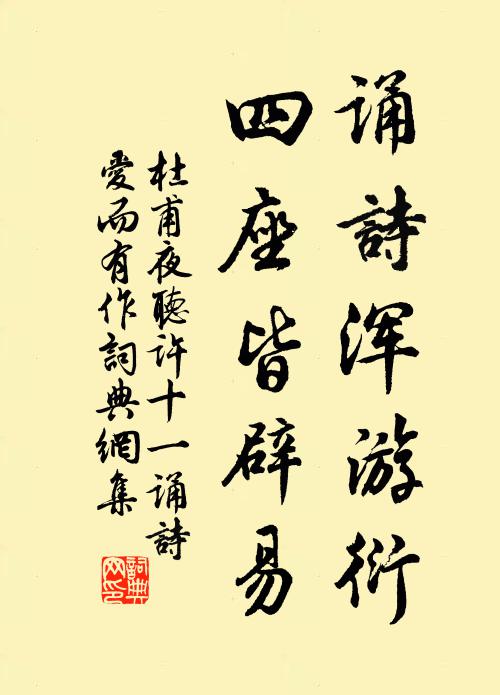 诵詩浑游衍
四座皆辟易
杜甫夜聽许十一诵詩
爱而有作詞典網集
詞典网印